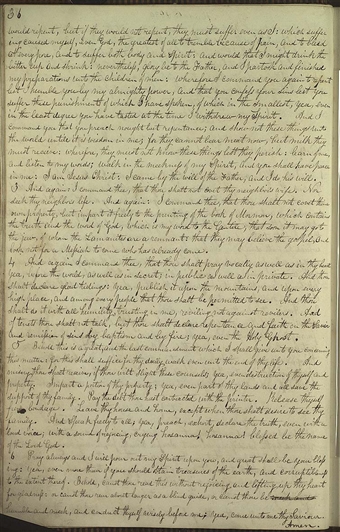 36
would repent, but if they would not repent, they must suffer even as I: which suffer
ing caused myself, even God, the greatest of all to tremble because of pain, and to bleed
at every pore, and to suffer both body and spirit: and would that I might not drink the
bitter cup and shrink: nevertheless, glory be to the Father, and I partook and finished
my preparations unto the children of men: wherefore I command you again to repent
lest I humble you by my almighty power, and that you confess your sins lest you
suffer these punishments of which I have spoken, of which in the smallest, yea, even
in the least degree you have tasted at the time I withdrew my Spirit. And I
command you that you preach nought but repentance; and show not these things unto
the world until it is wisdom in me; for they cannot bear meat now, but milk they
must receive: wherefore, they must not know these things lest they perish: learn of me
and listen to my words; walk in the meekness of my Spirit, and you shall have peace
in me: I am Jesus Christ: I came by the will of the Father, and I do his will.
3 And again: I command thee, that thou shalt not covet thy neighbor's wife. Nor
seek thy neighbor's life. And again: I command thee, that thou shalt not covet thine
own property, but impart it freely to the printing of the book of Mormon, which contains
the truth and the word of God, which is my word to the Gentile, that soon it may go to
the Jew, of whom the Lamanites are a remnant; that they may believe the gospel, and
look not for a Messiah to come who has already come.
4 And again: I command thee, that thou shalt pray vocally as well as in thy heart
yea, before the world, as well as in secret; in public as well as in private. And thou
shalt declare glad tidings: yea, publish it upon the mountains, and upon every
high place, and among every people that thou shalt be permitted to see. And thou
shalt do it with all humility, trusting in me, reviling not against revilers. And
of tenets thou shalt not talk, but thou shalt declare repentance and faith on the Savior
and remission of sins by baptism and by fire; yea, even the Holy Ghost.
5 Behold this is a great, and the last commandment which I shall give unto you concerning
this matter: for this shall suffice for thy daily walk even unto the end of thy life. And
misery thou shalt receive, if thou wilt slight these counsels: yea, even destruction of thyself and
property. Impart a portion of thy property; yea, even part of thy lands and all save the
support of thy family. Pay the debt thou hast contracted with the printer. Release thyself
from bondage. Leave thy house and home, except when thou shalt desire to see thy
family. And speak freely to all; yea, preach, exhort, declare the truth, even with a
loud voice; with a sound of rejoicing, crying hosanna! hosanna! blessed be the name
of the Lord God.
6 Pray always and I will pour out my Spirit upon you, and great shall be your bless
ing: yea, even more than if you should obtain treasures of the earth, and corruptibleness
to the extent thereof. Behold, canst thou read this without rejoicing and lifting up thy heart
for gladness: or canst thou run about longer as a blind guide, or canst thou be
humble and meek, and conduct thyself wisely before me: yea, come unto me thy Saviour
Amen.